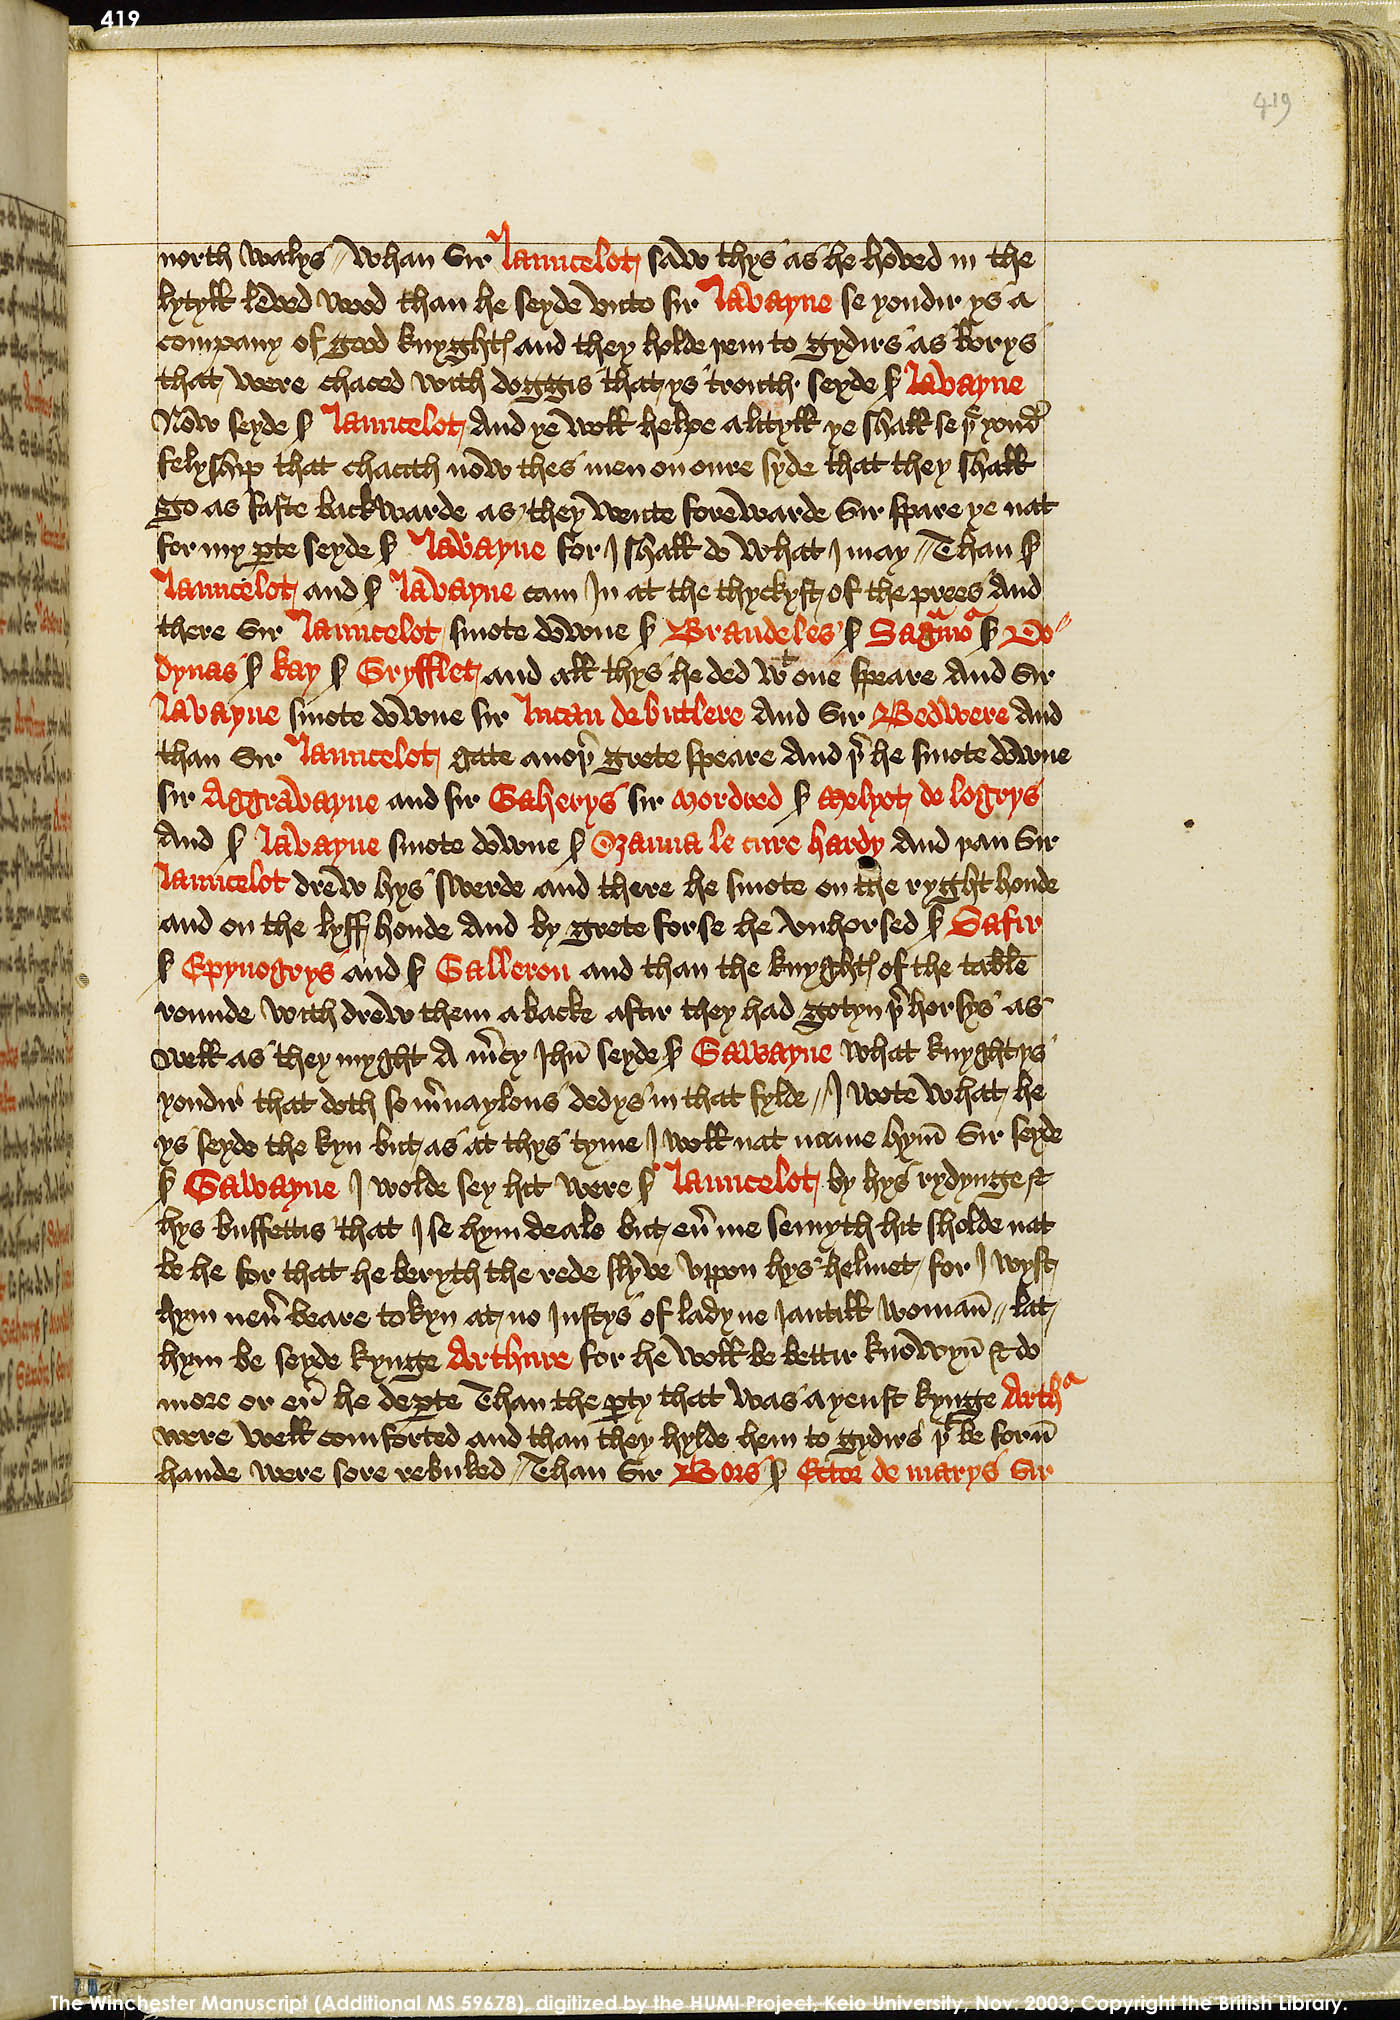 419
419
north walys // Whan Sir Launcelot saw thys as he hoved in the
lytyll leved wood than he seyde vnto sir Lavayne se yondir ys a
company of good knyghtes and they holde þem to gydirs as borys
that were chaced with doggis that ys trouth seyde sir Lavayne
Now seyde sir Launcelot And ye woll helpe a lityll ye shall se þe yondir
felyship that chacith now thes men on oure syde that they shall
go as faste backwarde as they wente forewarde Sir spare ye nat
for my parte seyde sir Lavayne for I shall do what I may // Than sir
Launcelot and sir Lavayne cam In at the thyckyst of the prees And
there Sir Launcelot smote downe sir Brandeles sir Sagramour sir Do
dynas sir kay sir Gryfflet and all thys he ded wt one speare And Sir
Lavayne smote downe sir Lucan de butlere And Sir Bedwere And
than Sir Launcelot gate anoþer grete speare And þer he smote downe
sir Aggravayne and sir Gaherys sir Mordred sir Melyot de logrys
And sir Lavayne smote downe sir Ozanna le cure hardy And þan Sir
Launcelot drew hys swerde and there he smote on the ryght honde
and on the lyff honde And by grete forse he vnhorsed sir Safir
sir Epynogrys and sir Galleron and than the knyghtes of the table
rounde with drew them abacke aftir they had gotyn þer horsys as
well as they myght A mercy Jhu seyde sir Gawayne what knyght ys
yondir that doth so mervaylous dedys in that fylde // I wote what he
ys seyde the kyng but as at thys tyme I woll nat name hym Sir seyde
sir Gawayne I wolde sey hit were sir Launcelot by hys rydynge &
hys buffettis that I se hym deale but ever me semyth hit sholde nat
be he for that he beryth the rede slyve vppon hys helmet for I wyst
hym never beare tokyn at no Justys of lady ne Jantill woman // lat
hym be seyde kynge Arthure for he woll be bettir knowyn & do
more or ever he departe Than the party that was ayenst kynge Arthur
were well comforted and than they hylde hem to gydirs þt be forun
hande were sore rebuked // Than Sir Bors sir Ector de marys Sir
The Winchester Manuscript (Additional MS 59678), digitized by the HUMI Project, Keio University, Nov. 2003; Copyright the British Library.